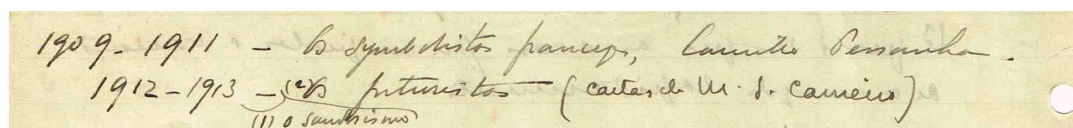 1909-1911 - Os symbolistas francezes, Camillo Pessanha.
1912-1913 - (2) Os futuristas (cartas de M. S. Carneiro)
(1) o saudosismo